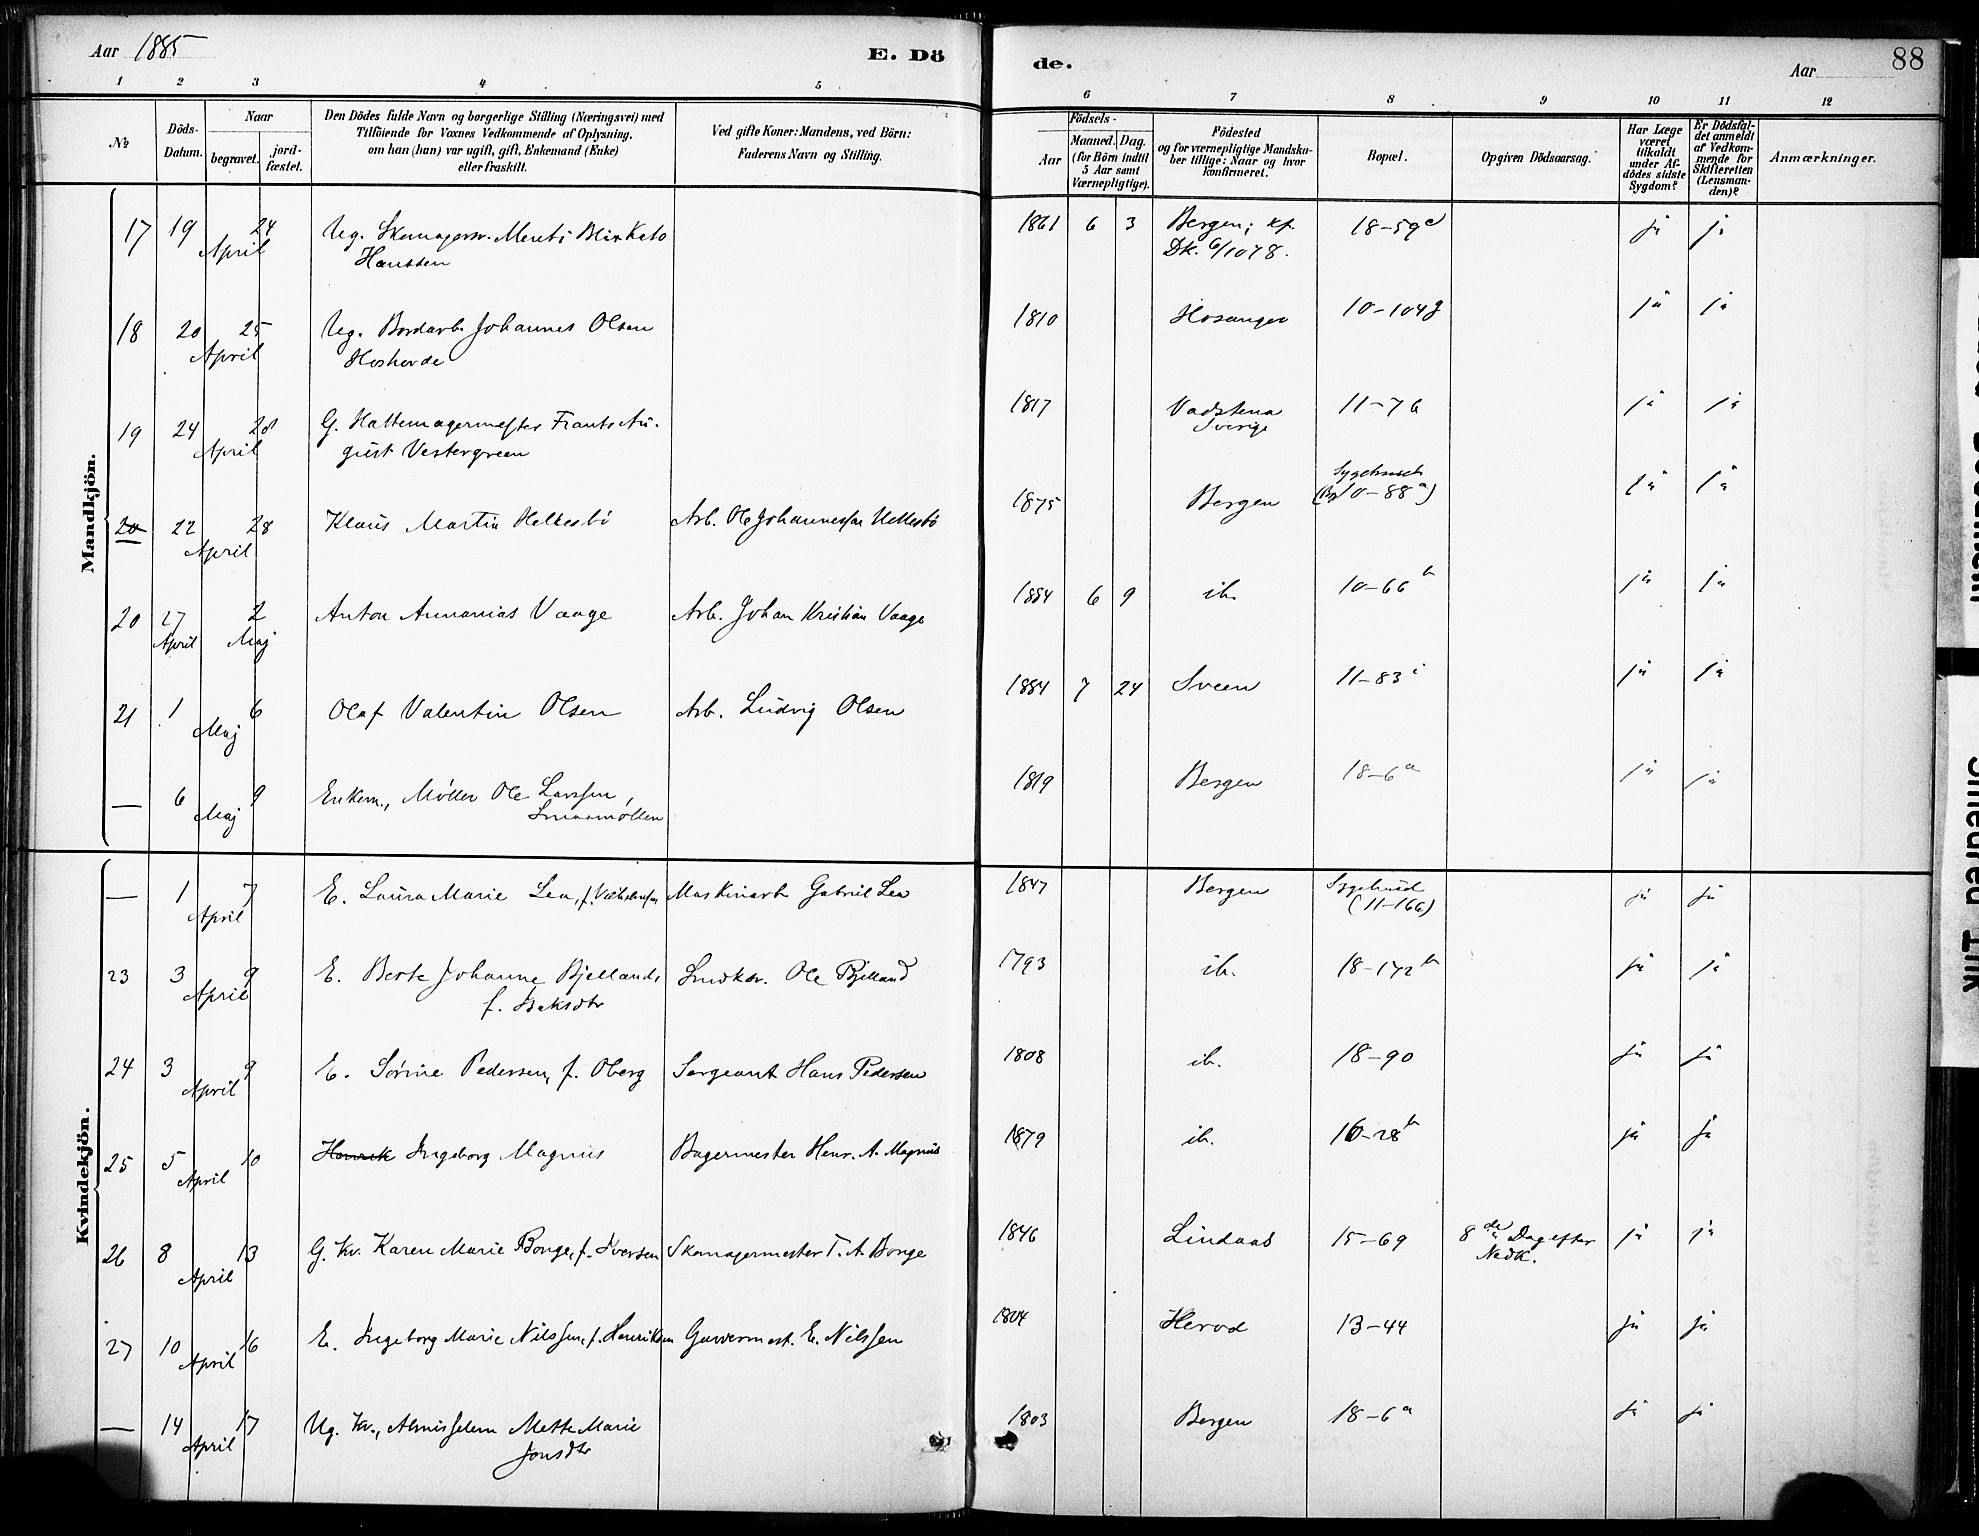 Aar 1885
E. Dö
de.
Aar
88
1 2 3 4 5 6 7 8 9 10 11 12
№
Döds-
Datum.
Naar
begravet.
jord-
fæstet.
Den Dödes fulde Navn og borgerlige Stilling (Næringsvei) med
Tilföiende for Voxnes Vedkommende af Oplysning,
om han (hun) var ugift, gift, Enkemand (Enke)
eller fraskilt.
Ved gifte Koner: Mandens, ved Börn:
Faderens Navn og Stilling.
Födsels-
Aar
Maaned. Dag.
(for Börn indtil
5 Aar samt
Værnepligtige).
Födested
og for værnepligtige Mandska-
ber tillige: Naar og hvor
konfirmeret.
Bopæl.
Opgiven Dödsaarsag.
Har Læge
været
tilkaldt
under Af-
dödes sidste
Sygdom?
Er Dödsfal-
det anmeldt
af Vedkom-
mende for
Skifteretten
(Lensman-
den)?
Anmærkninger.
Mandkjön.
17 19 24 Ug. Skomagersv. Ments Blix Kato 1861 6 3 Bergen; kf. 18-59c ja ja
April Hanssen Dk. 6/10 78.
18 20 25 Ug. Bordarb. Johannes Olsen 1810 Hosanger 10-104g ja ja
April Hoshovde
19 24 28 G. Hattemagermester Frants Au- 1817 Vadstena 11-76 ja ja
April gust Vestergreen Sverige
20 22 28 Klaus Martin Hellesbö Arb. Ole Johannessen Hellesbö 1875 Bergen Sygehuset ja ja
April 10-88a)
20 27 2 Anton Annanias Vaage Arb. Johan Kristian Vaage 1884 6 9 ib. 10-66b ja ja
April Maj
21 1 6 Olaf Valentin Olsen Arb. Ludvig Olsen 1884 7 24 Sveen 11-83i ja ja
Maj
— 6 9 Enkem., Møller Ole Larssen, 1819 Bergen 18-6a ja ja
Maj Smaamøllen
Kvindekjön.
— 1 7 E. Laura Marie Lea, f. Maskinarb Gabriel Lea 1847 Bergen Sygehus ja ja
April (11-16a)
23 3 9 E. Berte Johanne Bjellands Ole Bjelland 1793 ib. 18-172b ja ja
April f.
24 3 9 E. Sørine Pedersen, f. Oberg Sergeant Hans Pedersen 1808 ib. 18-90 ja ja
April
25 5 10 Henrik Ingeborg Magnus Bagermester Henr. A. Magnus 1879 ib. 10-28b ja ja
April
26 8 13 G. Kv. Karen Marie Borge, f. Iversen Skomagermester T. A. Borge 1846 Lindaas 15-69 8de Dag efter ja ja
April Nedk.
27 10 16 E. Ingeborg Marie Nilssen, f. Henriksen Garvermest. E. Nilssen 1804 Herød 13-44 ja ja
April
— 14 17 Ug. Kv., Almisselem Mette Marie 1803 Bergen 18-6a ja ja
April Jonsdtr